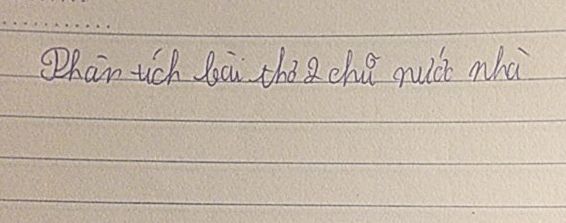 Phân tích bài thơ 2 chữ nước nhà